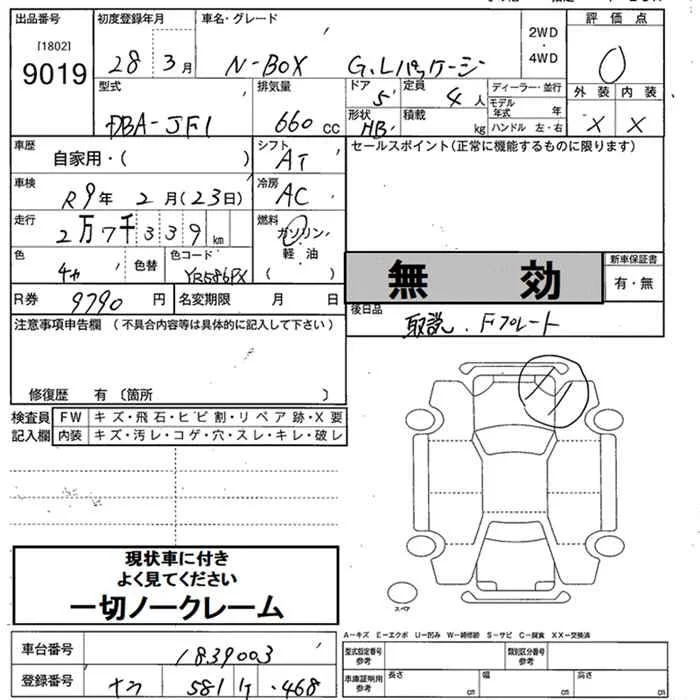 出品番号 初度登録年月 車名・グレード 評価点
[1802]
9019 28 3月 N-BOX G.Lパッケージ 2WD・4WD
外装 内装
型式 排気量 ドア 定員 ディーラー・並行
5 4人
DBA-JF1 660cc 形状 積載 モデル年式 年
HB kg ハンドル 左・右 X X
車歴 シフト セールスポイント(正常に機能するものに限ります)
自家用・( ) AT
車検 冷房
R9年 2月(23日) AC
走行 燃料
2万7千339km ガソリン・
色 色替 色コード 軽油 新車保証書
YR586PX ( ) 無 効 有・無
R券 9790円 名変期限 月 日
後日品
注意事項申告欄(不具合内容等は具体的に記入して下さい) 取説.Fプレート
修復歴 有〔箇所 〕
検査員 FW キズ・飛石・ヒビ割・リペア跡・X要
記入欄 内装 キズ・汚レ・コゲ・穴・スレ・キレ・破レ
現状車に付き
よく見てください
一切ノークレーム
スペア
A-キズ E-エクボ U-凹み W-補修跡 S-サビ C-腐食 XX-交換済
車台番号 1839003 型式指定番号 参考 類別区分番号 参考
登録番号 581 け ・468 車庫証明用 参考 長さ cm 幅 cm 高さ cm